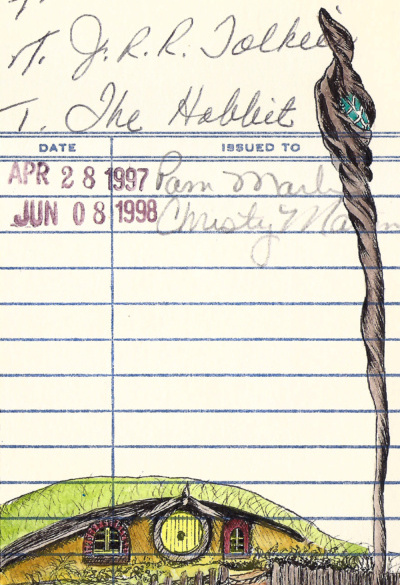 A. J. R. R. Tolkien
T. The Hobbit
DATE ISSUED TO
APR 28 1997 Pam
JUN 08 1998 Christy